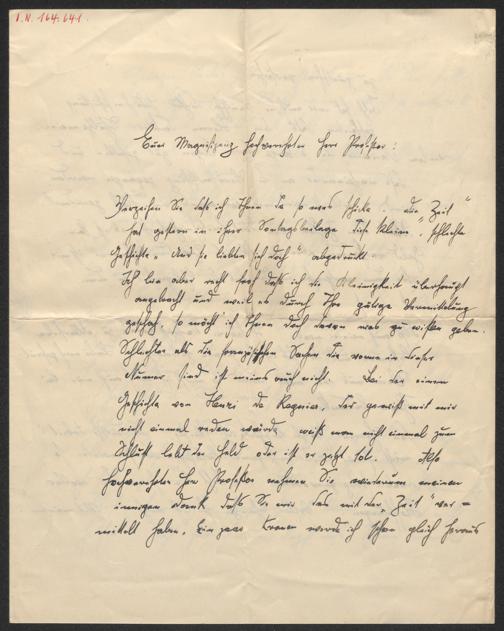 I.N. 164.641
Euer Magnifizenz hochverehrter Herr Professor:
Verzeihen Sie daß ich Ihnen da so was schicke - die „Zeit"
hat gestern in ihrer Sontagsbeilage diese kleine, schlechte
Geschichte „Und sie lieben sich doch" abgedruckt.
Ich bin aber recht froh daß ich die Kleinigkeit überhaupt
angebracht und weil es durch Ihre gütige Vermittlung
geschah, so möcht ich Ihnen doch davon was zu wissen geben.
Schlechter als die französischen Sachen die vorne in dieser
Numer sind ist meins auch nicht. Bei der einen
Geschichte von Henri de Regnier, der gewiß mit mir
nicht einmal reden würde weiß man nicht einmal zum
Schluß lebt der Held oder ist er jetzt tot. Also
hochverehrter Herr Professor nehmen Sie wiederum meinen
innigen Dank daß Sie mir das mit der „Zeit" ver=
mittelt haben. Ein paar Kronen werde ich schon gleich heraus